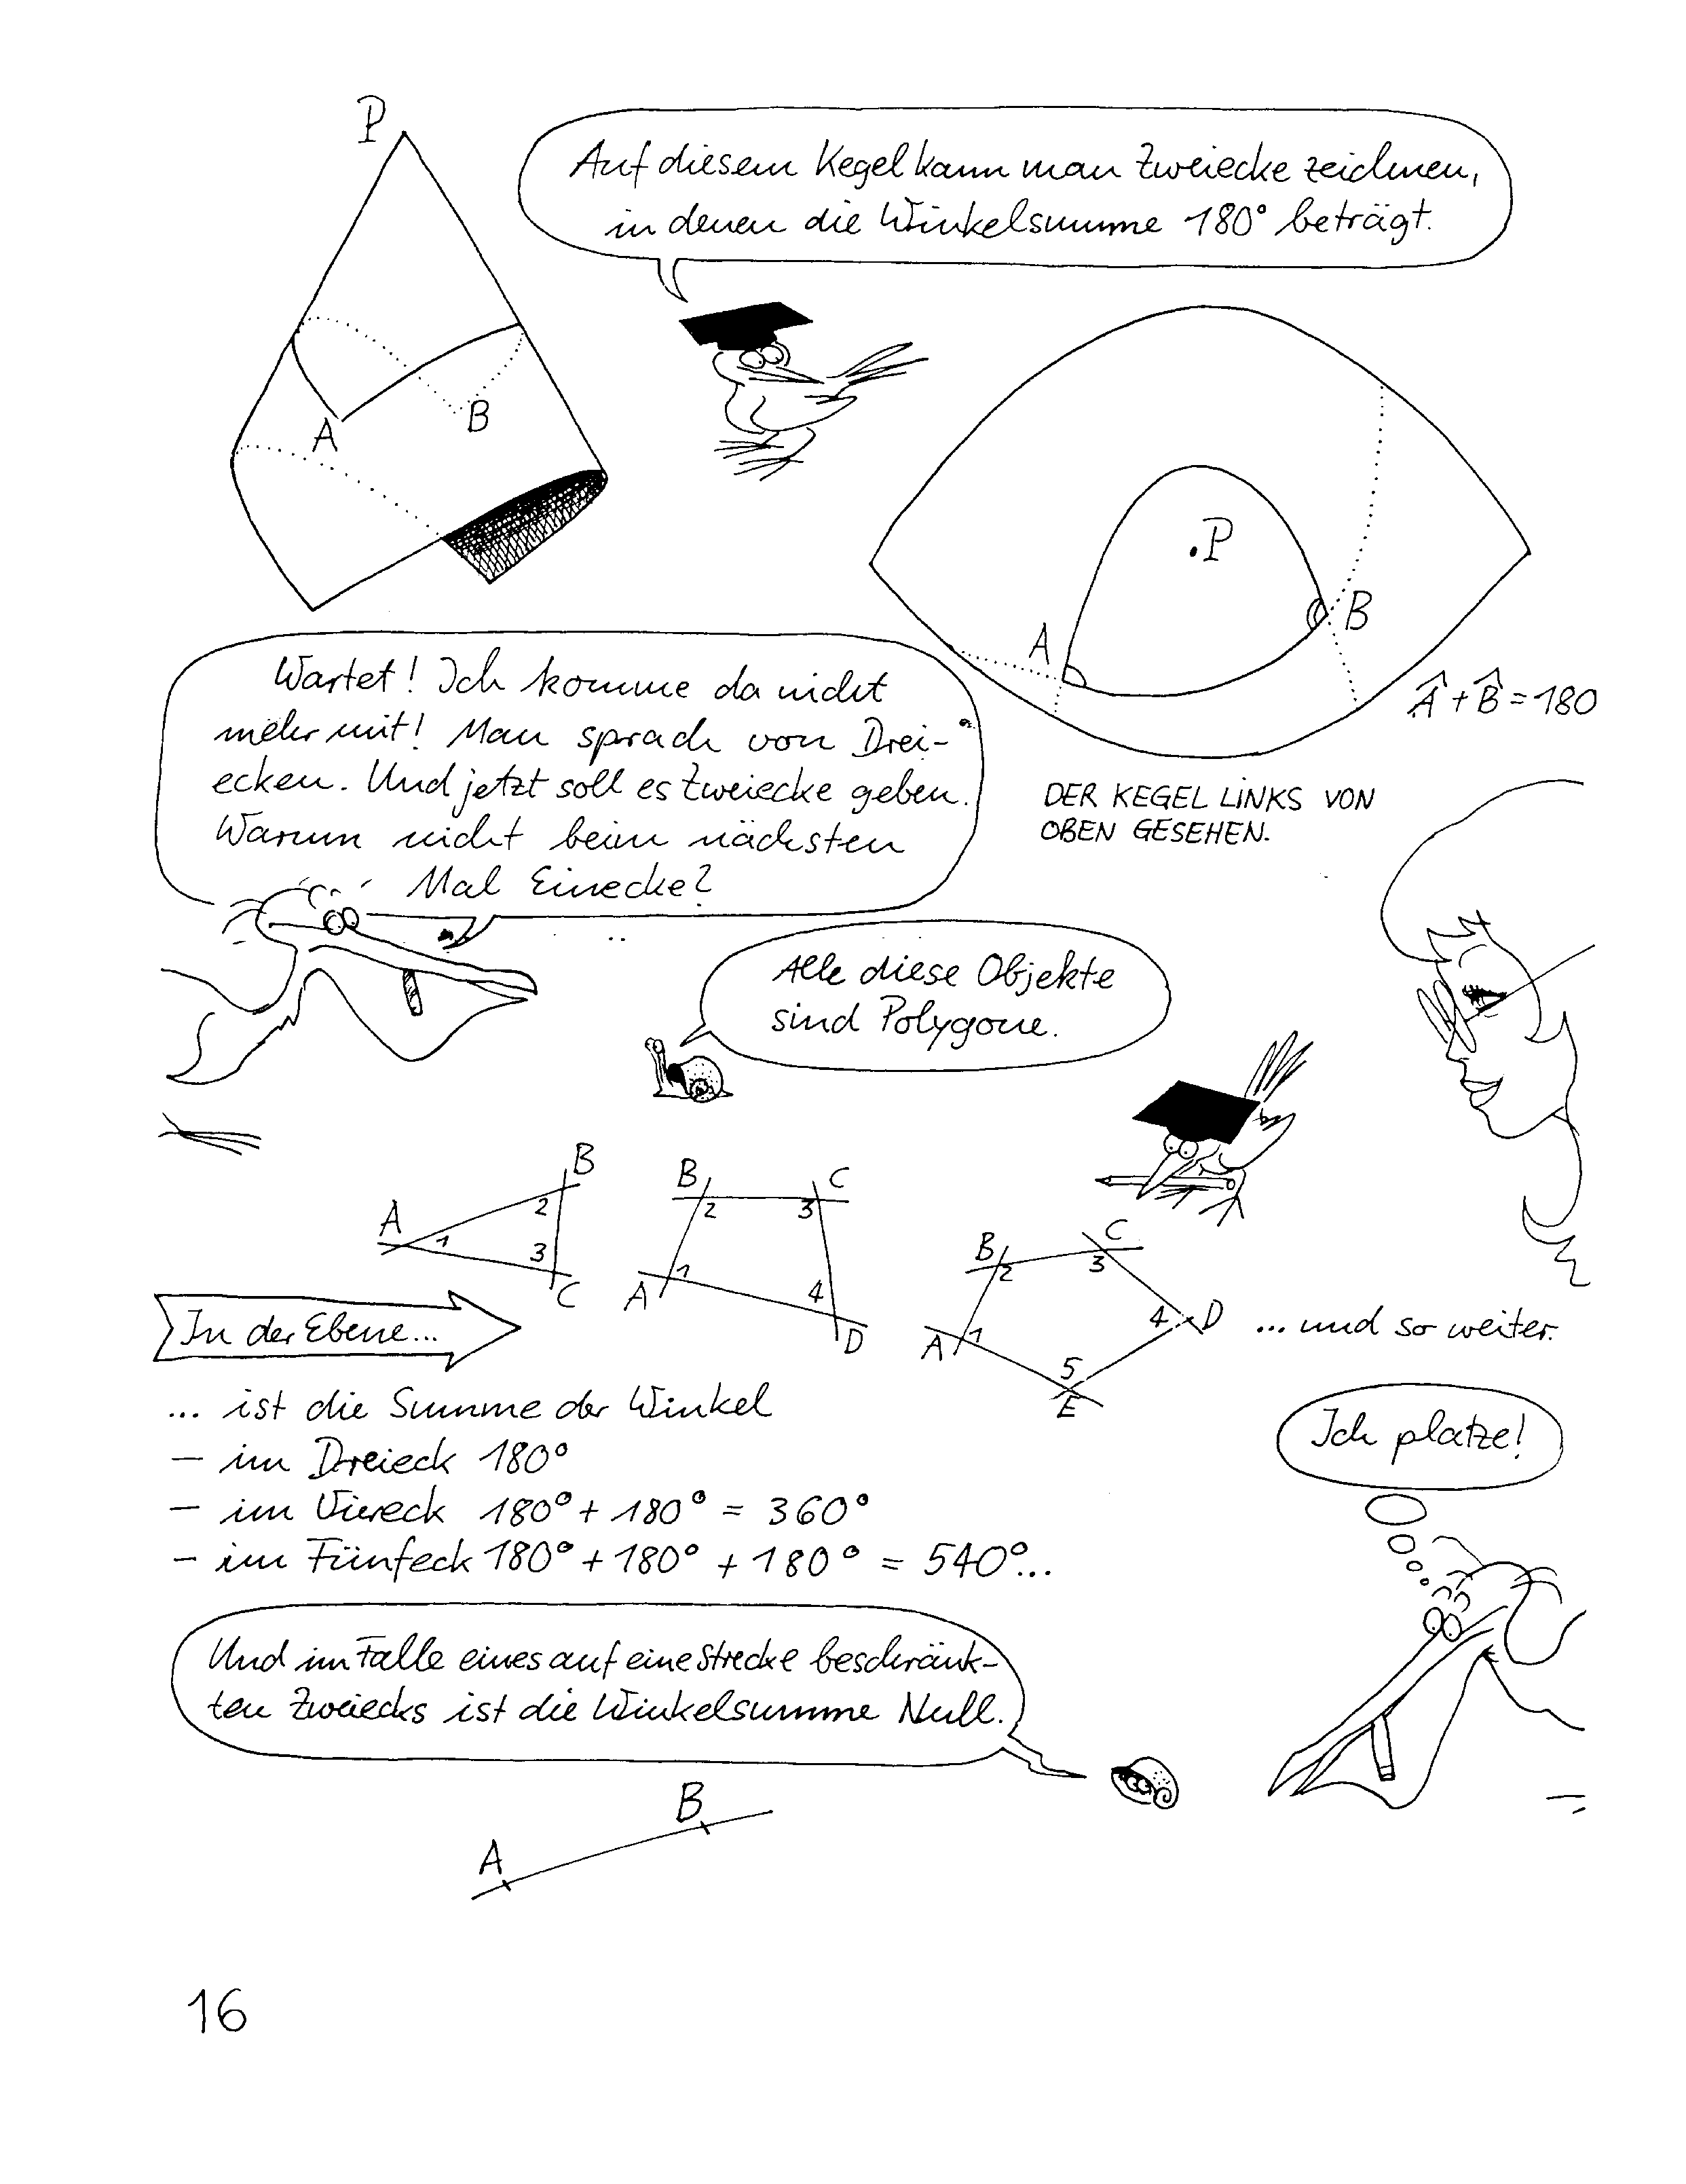 P
Auf diesem Kegel kann man Zweiecke zeichnen,
in denen die Winkelsumme 180° beträgt.
A
B
P
A
B
Â + B̂ = 180
DER KEGEL LINKS VON
OBEN GESEHEN.
Wartet! Ich komme da nicht
mehr mit! Man sprach von Drei-
ecken. Und jetzt soll es Zweiecke geben.
Warum nicht beim nächsten
Mal Einecke?
Alle diese Objekte
sind Polygone.
A
B
C
1
2
3
A
B
C
D
1
2
3
4
A
B
C
D
E
1
2
3
4
5
In der Ebene...
... und so weiter.
... ist die Summe der Winkel
– im Dreieck 180°
– im Viereck 180° + 180° = 360°
– im Fünfeck 180° + 180° + 180° = 540°...
Ich platze!
Und im Falle eines auf eine Strecke beschränk-
ten Zweiecks ist die Winkelsumme Null.
A
B
16